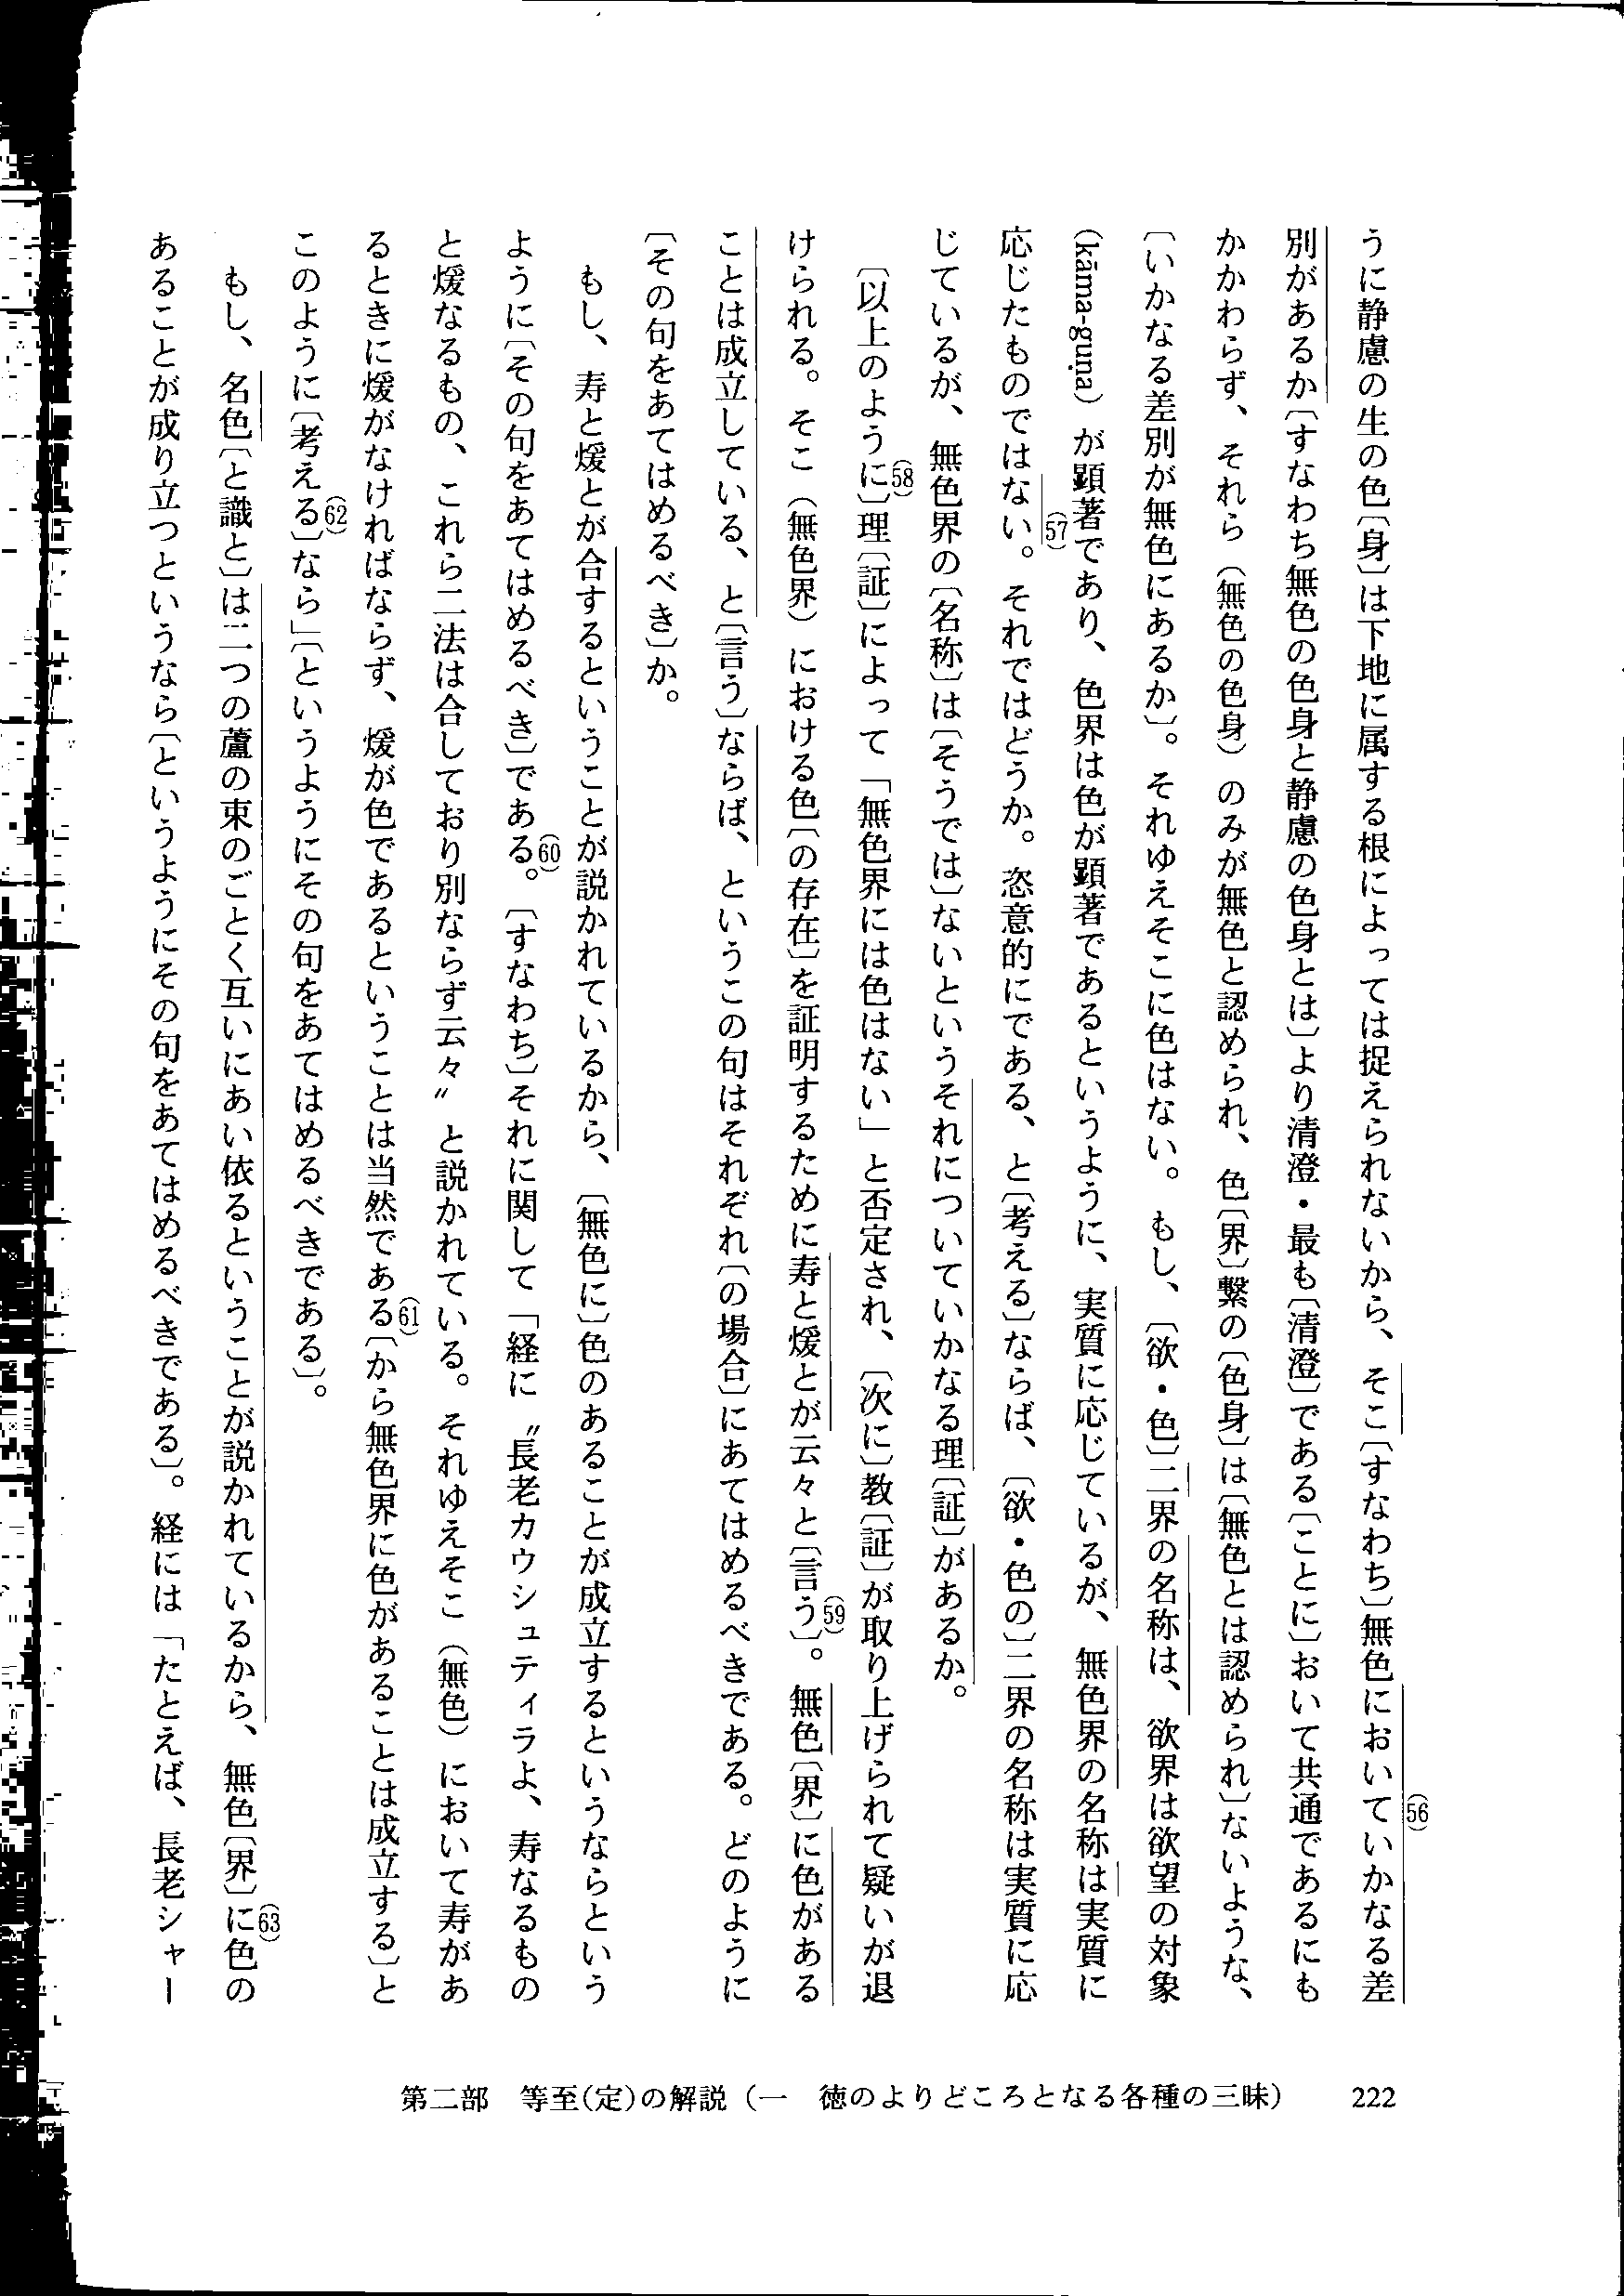 うに静慮の生の色〔身〕は下地に属する根によっては捉えられないから、そこ〔すなわち〕無色においていかなる差(56)
別があるか〔すなわち無色の色身と静慮の色身とは〕より清澄・最も〔清澄〕である〔ことに〕おいて共通であるにも
かかわらず、それら（無色の色身）のみが無色と認められ、色〔界〕繋の〔色身〕は〔無色とは認められ〕ないような、
〔いかなる差別が無色にあるか〕。それゆえそこに色はない。もし、〔欲・色〕二界の名称は、欲界は欲望の対象
（kāma-guṇa）が顕著であり、色界は色が顕著であるというように、実質に応じているが、無色界の名称は実質に
応じたものではない(57)。それではどうか。恣意的にである、と〔考える〕ならば、〔欲・色の〕二界の名称は実質に応
じているが、無色界の〔名称〕は〔そうでは〕ないというそれについていかなる理〔証〕があるか。
〔以上のように〕(58)理〔証〕によって「無色界には色はない」と否定され、〔次に〕教〔証〕が取り上げられて疑いが退
けられる。そこ（無色界）における色〔の存在〕を証明するために寿と煖とが云々と〔言う〕(59)。無色〔界〕に色がある
ことは成立している、と〔言う〕ならば、というこの句はそれぞれ〔の場合〕にあてはめるべきである。どのように
〔その句をあてはめるべき〕か。
もし、寿と煖とが合するということが説かれているから、〔無色に〕色のあることが成立するというならという
ように〔その句をあてはめるべき〕である(60)。〔すなわち〕それに関して「経に〝長老カウシュティラよ、寿なるもの
と煖なるもの、これら二法は合しており別ならず云々〟と説かれている。それゆえそこ（無色）において寿があ
るときに煖がなければならず、煖が色であるということは当然である(61)〔から無色界に色があることは成立する〕と
このように〔考える〕(62)なら」〔というようにその句をあてはめるべきである〕。
もし、名色〔と識と〕は二つの蘆の束のごとく互いにあい依るということが説かれているから、無色〔界〕に(63)色の
あることが成り立つというなら〔というようにその句をあてはめるべきである〕。経には「たとえば、長老シャー
第二部　等至(定)の解説（一　徳のよりどころとなる各種の三昧）　222